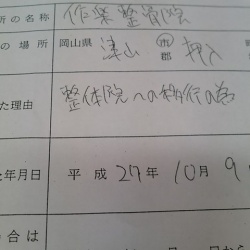 所の名称 作楽整骨院
の場所 岡山県 津山 市 郡 押入
た理由 整体院への移行の為
年月日 平成 27年 10月 9
合は